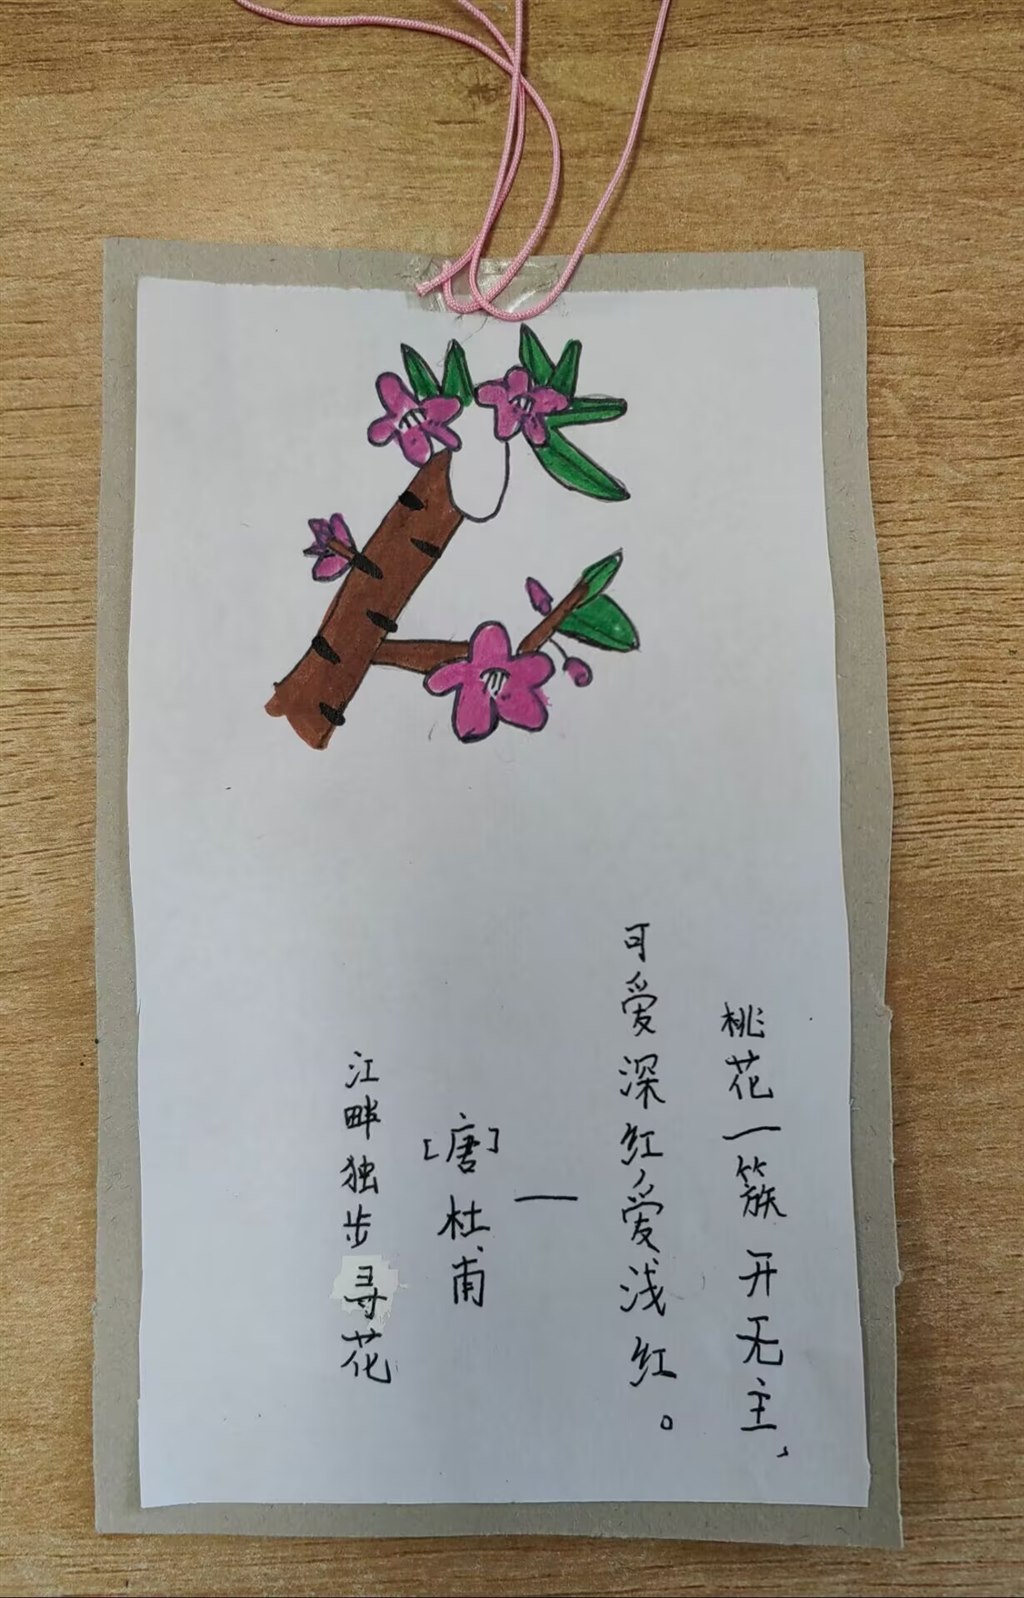 桃花一簇开无主，
可爱深红爱浅红。
—
[唐]杜甫
江畔独步寻花